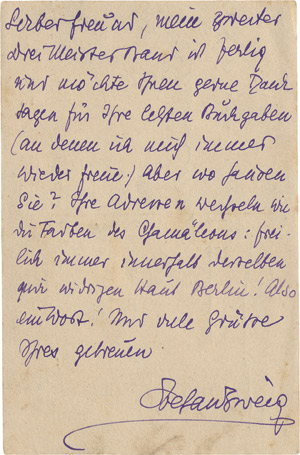 Lieber Freund, mein zweiter
Drei Meister Band ist fertig
und möchte Ihnen gerne Dank
sagen für Ihre letzten Buchgaben
(an denen ich mich immer
wieder freue.) Aber wo hausen
Sie? Ihre Adressen wechseln wie
die Farben des Chamäleons: frei-
lich immer innerhalb derselben
mir widrigen Haut Berlin! Also
ein Wort! Und viele Grüsse
Ihres getreuen
Stefan Zweig